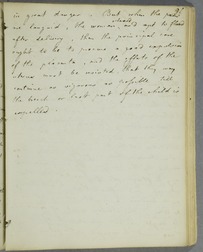 in great danger. But when the pains
are languid, the woman weak, and apt to flood
after delivery, then the principal care
ought to be to procure a good expulsion
of the placenta, and the efforts of the
uterus must be assisted that they may
continue as vigorous as possible till
the breech or last part of the child is
expelled.